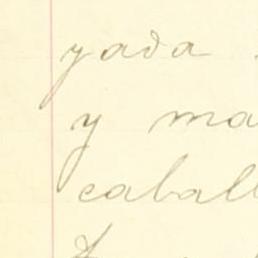 yada
y ma
caball